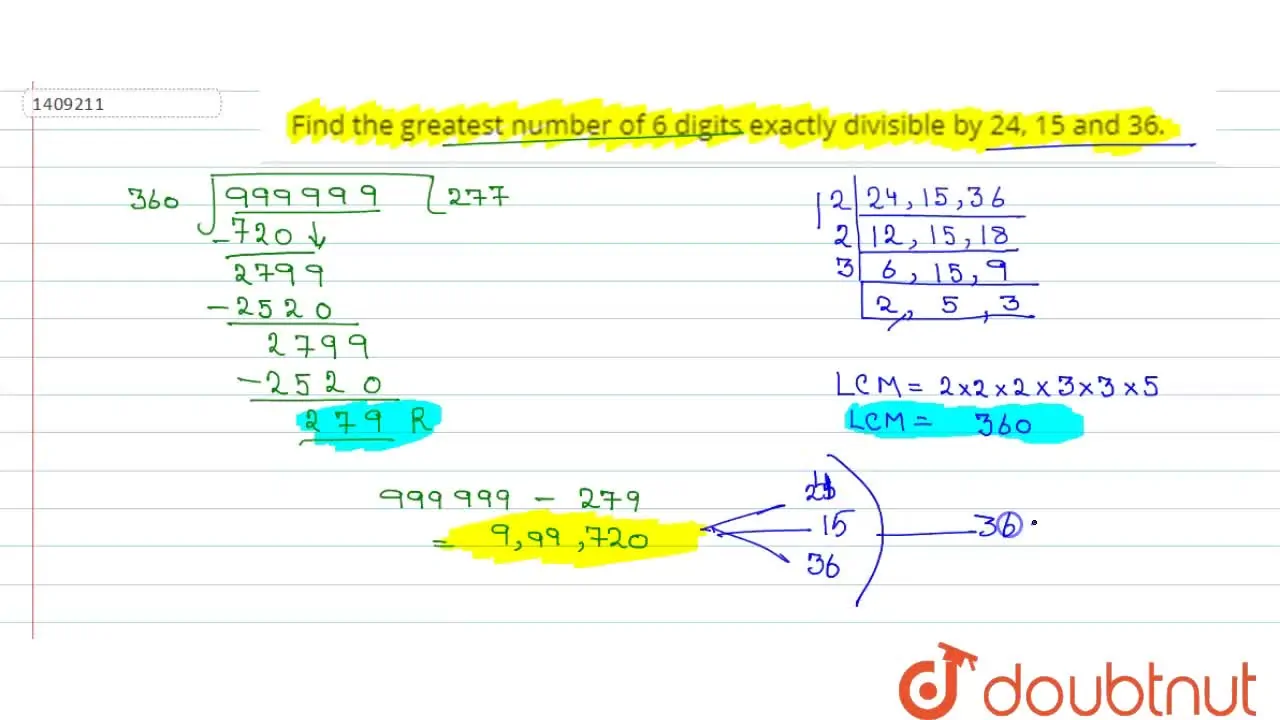 1409211
Find the greatest number of 6 digits exactly divisible by 24, 15 and 36.
360 999999 277
-720↓
2799
-2520
2799
-2520
279 R
2 24, 15, 36
2 12, 15, 18
3 6, 15, 9
2, 5, 3
LCM = 2×2×2×3×3×5
LCM = 360
999999 - 279
= 9,99,720
15
36
36
doubtnut